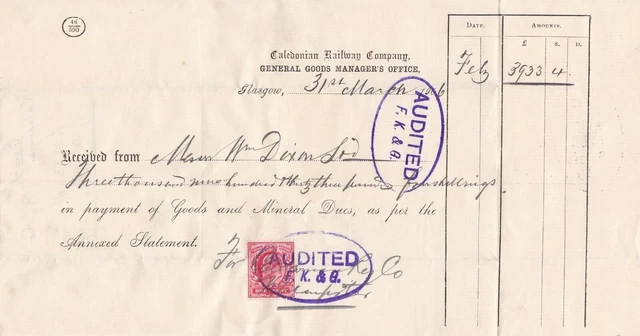 46
Date. Amounts.
£ s. D.
Caledonian Railway Company,
GENERAL GOODS MANAGER'S OFFICE,
Glasgow, 31st March 1906
Feb 3933 4.
AUDITED
F. K. & G.
Received from Messrs Wm Dixon Ltd
Three thousand nine hundred thirty three pounds four shillings
in payment of Goods and Mineral Dues, as per the
Annexed Statement.
For Ry Co
AUDITED
F. K. & G.